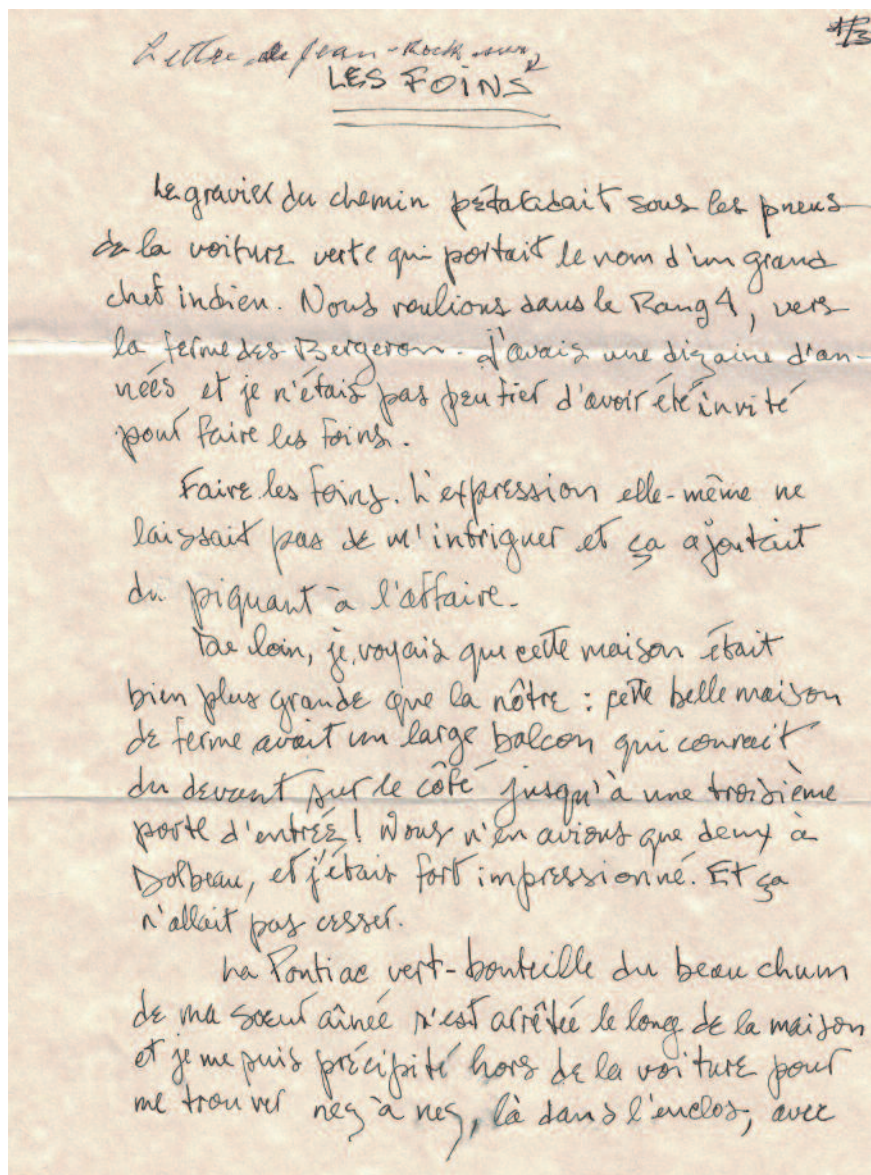 Lettre de Jean-Rock sur
1/3
LES FOINS
Le gravier du chemin pétaradait sous les pneus
de la voiture verte qui portait le nom d'un grand
chef indien. Nous roulions dans le Rang 4, vers
la ferme des Bergeron. J'avais une dizaine d'an-
nées et je n'étais pas peu fier d'avoir été invité
pour faire les foins.
Faire les foins. L'expression elle-même ne
laissait pas de m'intriguer et ça ajoutait
du piquant à l'affaire.
De loin, je voyais que cette maison était
bien plus grande que la nôtre : cette belle maison
de ferme avait un large balcon qui courait
du devant sur le côté jusqu'à une troisième
porte d'entrée ! Nous n'en avions que deux à
Dolbeau, et j'étais fort impressionné. Et ça
n'allait pas cesser.
La Pontiac vert-bouteille du beau chum
de ma sœur aînée s'est arrêtée le long de la maison
et je me suis précipité hors de la voiture pour
me trouver nez à nez, là dans l'enclos, avec